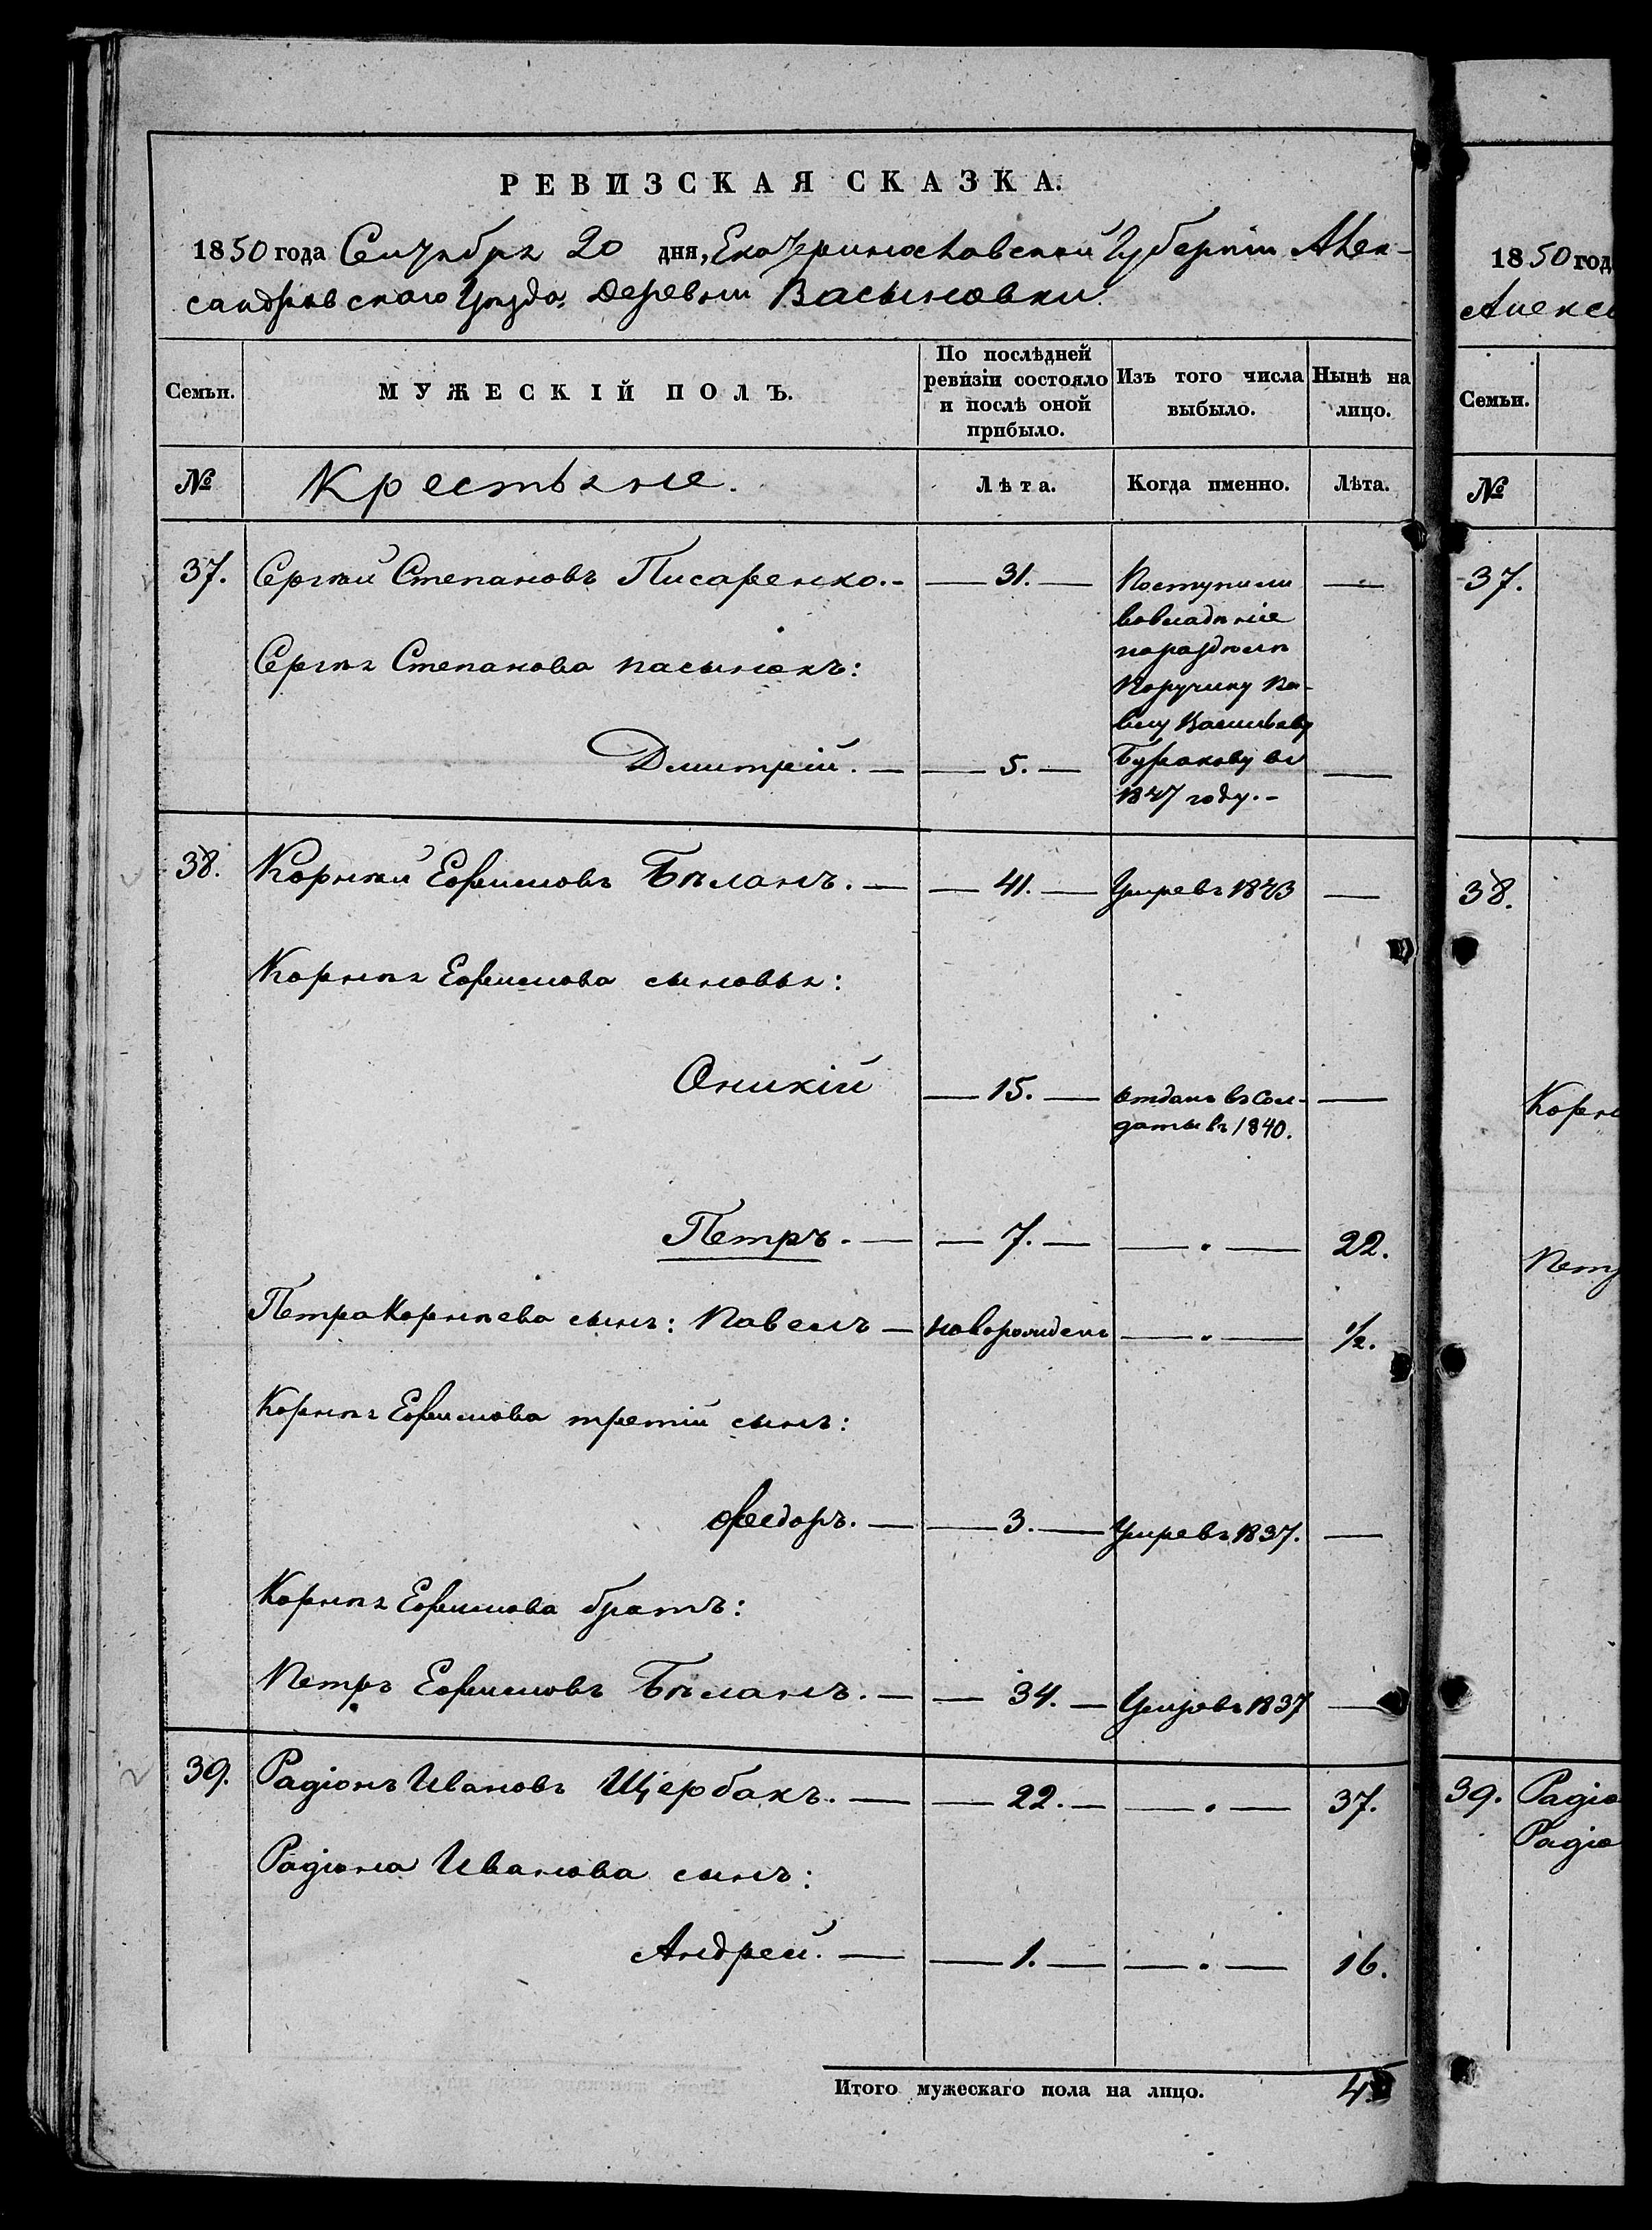 РЕВИЗСКАЯ СКАЗКА.
1850 года Сентября 20 дня, Екатеринославской Губерніи Алек-
сандровскаго Уѣзда, Деревни Васиновки.
Семьи.
МУЖЕСКІЙ ПОЛЪ.
По послѣдней ревизіи состояло и послѣ оной прибыло.
Изъ того числа выбыло.
Нынѣ на лицо.
№
Крестьяне.
Лѣта.
Когда именно.
Лѣта.
37. Сергѣй Степановъ Писаренко. — 31. — Поступили —
во владѣніе
Сергѣя Степанова пасынокъ: по раздѣлу
Поручику Па-
влу Васильеву
Дмитрій. — 5. — Буракову въ —
1847 году. -
38. Корнѣй Ефимовъ Бѣланъ. — 41. — Умре въ 1843 —
Корнѣя Ефимова сыновья:
Оникій — 15. — отданъ въ Сол- —
даты въ 1840.
Петръ. — 7. — — . — 22.
Петра Корнѣева сынъ: Павелъ — новорожденъ — . — 1/2.
Корнѣя Ефимова третій сынъ:
Ѳедоръ. — 3. — Умре въ 1837. —
Корнѣя Ефимова братъ:
Петръ Ефимовъ Бѣланъ. — 34. — Умре въ 1837 —
39. Радіонъ Ивановъ Щербакъ. — 22. — — . — 37.
Радіона Иванова сынъ:
Андрей. — 1. — — . — 16.
Итого мужескаго пола на лицо. 4
1850 год
Алекс
Семьи.
№
37.
38.
Корнѣ
Петр
39. Радіо
Радіо